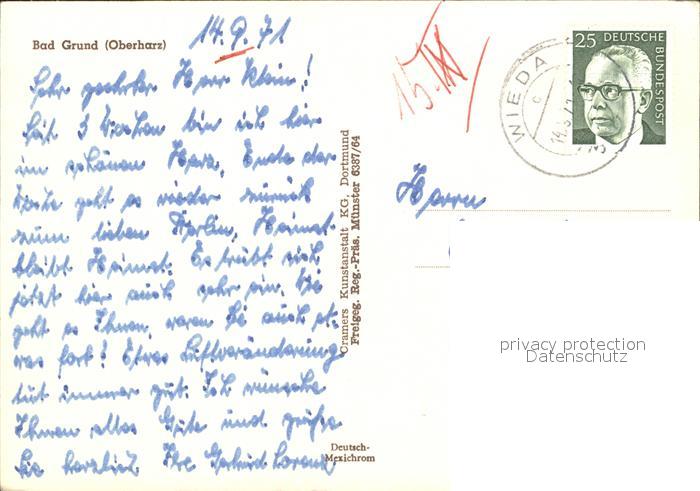 Bad Grund (Oberharz)
14.9.71
Sehr geehrter Herr Klein!
Seit 3 Wochen bin ich hier
im schönen Harz. Ende der
Woche geht es wieder zurück
zum lieben Berlin, Heimat
bleibt Heimat. Es trübt sich
jetzt hier auch sehr ein. Wie
geht es Ihnen, waren Sie auch et-
was fort? Etwas Luftveränderung
tut immer gut. Ich wünsche
Ihnen alles Gute und grüße
Sie herzlich. Ihre Gertrud Lorenz
Cramers Kunstanstalt KG. Dortmund
Freigeg. Reg.-Präs. Münster 6387/64
Deutsch-
Mexichrom
15.IX
WIEDA
25 DEUTSCHE BUNDESPOST
Herrn
privacy protection
Datenschutz